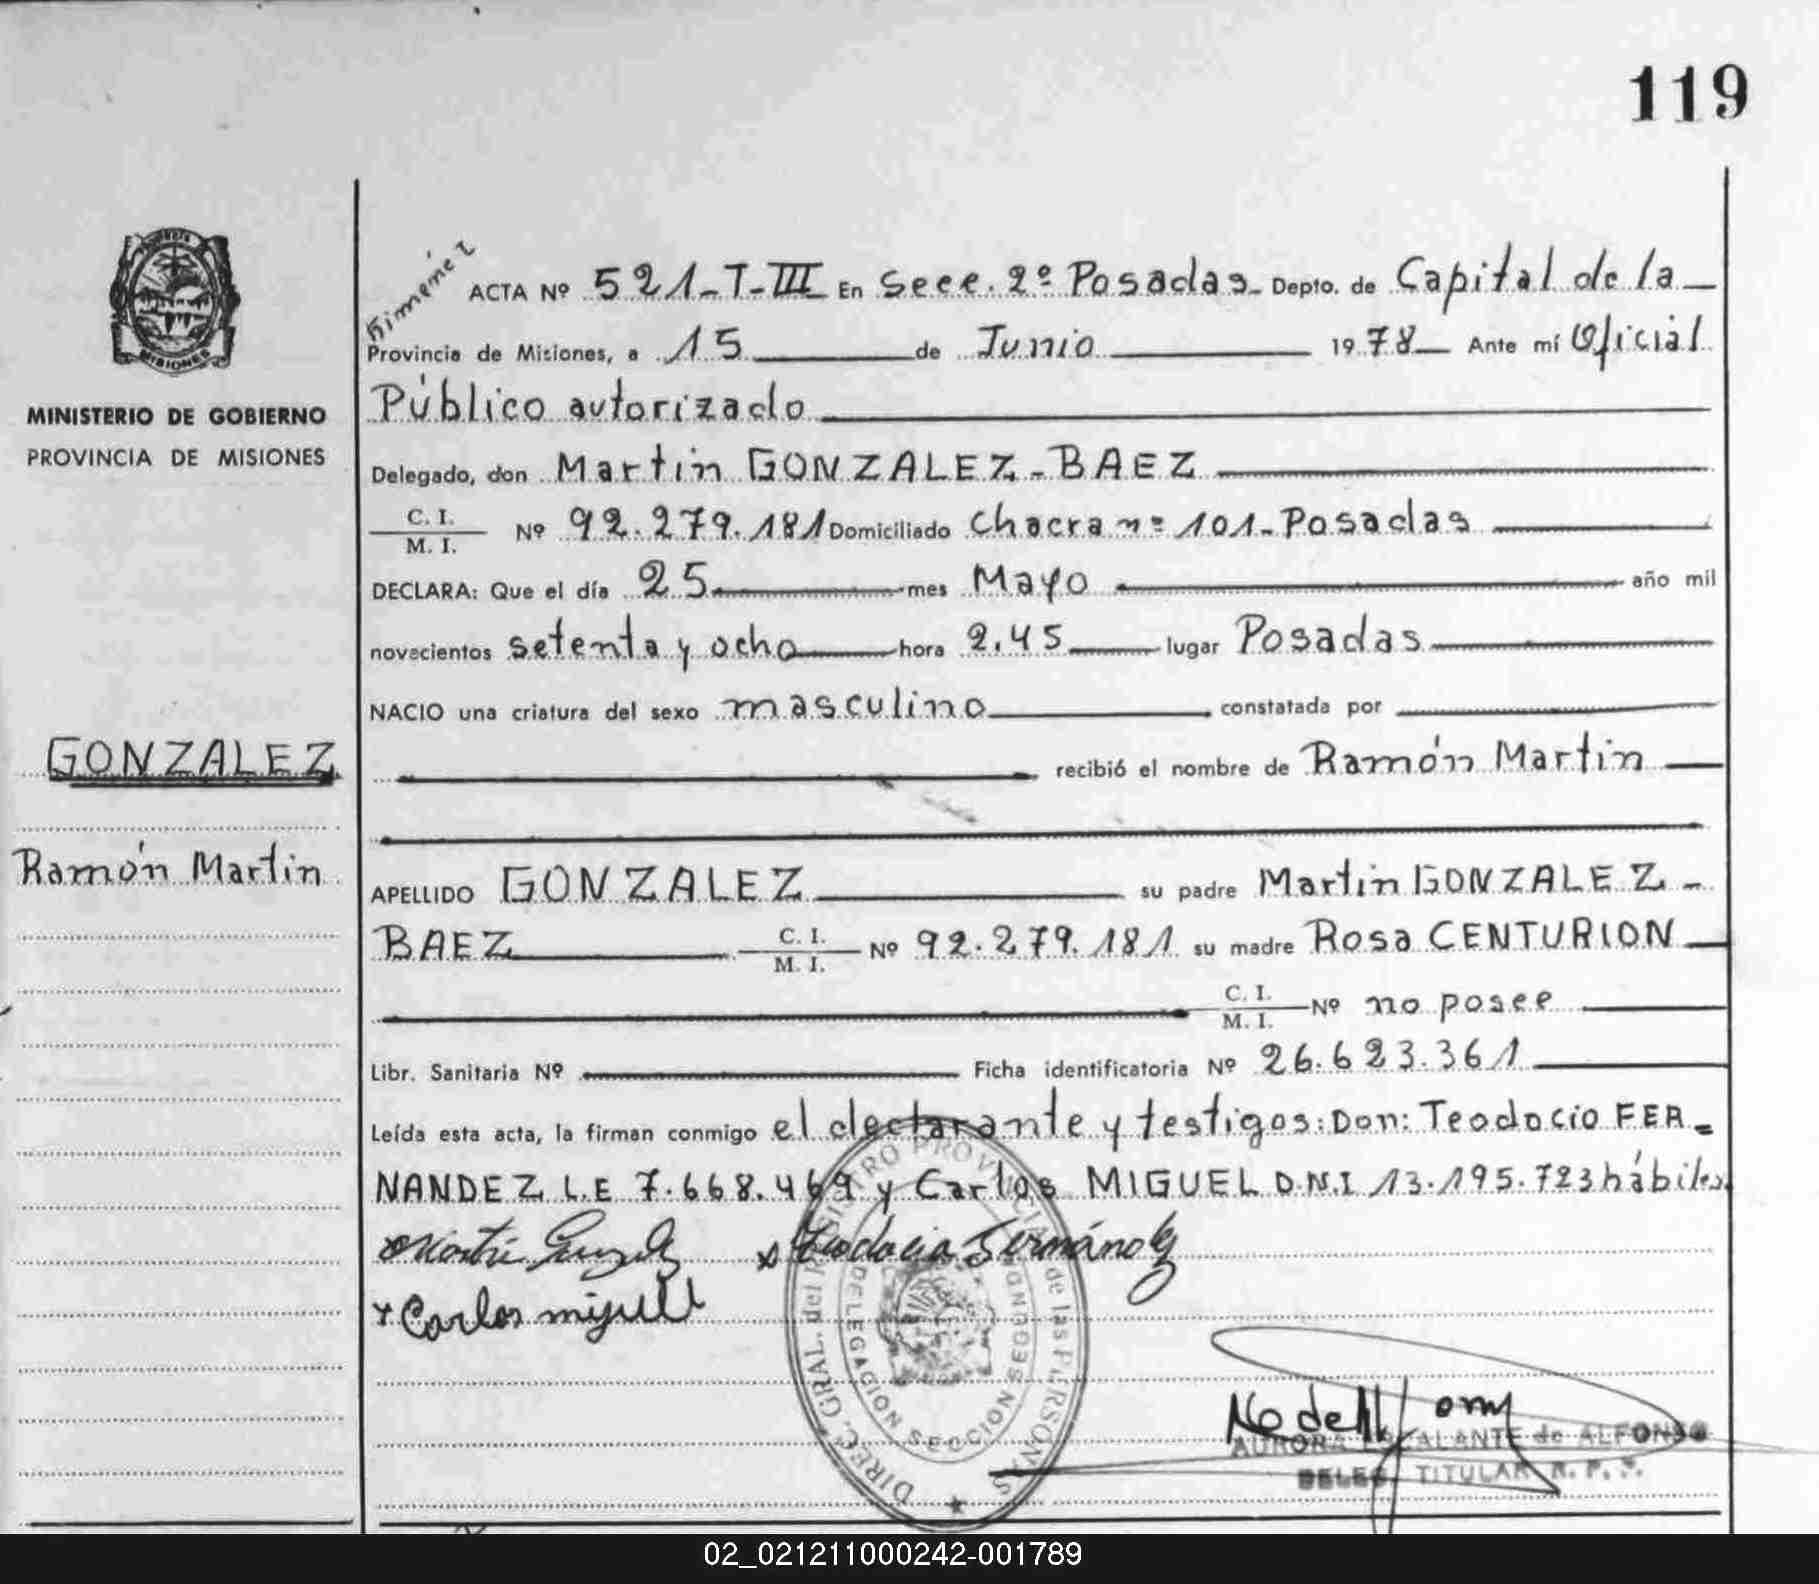 119
Gimenez
ACTA Nº 521-T-III En Secc. 2º Posadas Depto. de Capital de la
Provincia de Misiones, a 15 de Junio 1978 Ante mí Oficial
PROVINCIA
MISIONES
MINISTERIO DE GOBIERNO
PROVINCIA DE MISIONES
Público autorizado
Delegado, don Martin GONZALEZ-BAEZ
C. I.
M. I. Nº 92.279.181 Domiciliado Chacra nº 101-Posadas
DECLARA: Que el día 25 mes Mayo año mil
novecientos setenta y ocho hora 2.45 lugar Posadas
NACIO una criatura del sexo masculino constatada por
GONZALEZ
recibió el nombre de Ramón Martin
Ramón Martin
APELLIDO GONZALEZ su padre Martin GONZALEZ-
BAEZ C. I. M. I. Nº 92.279.181 su madre Rosa CENTURION
C. I. M. I. Nº no posee
Libr. Sanitaria Nº Ficha identificatoria Nº 26.623.361
Leída esta acta, la firman conmigo el declarante y testigos: Don: Teodocio FER-
NANDEZ L.E 7.668.469 y Carlos MIGUEL D.N.I 13.195.723 hábiles
Teodocio Fernández
Carlos miguel
DIREC. GRAL. del REGISTRO PROVINCIAL de las PERSONAS
DELEGACION SECCION SEGUNDA
AURORA ESCALANTE de ALFONSO
DELEG. TITULAR R. P. P.
02_021211000242-001789